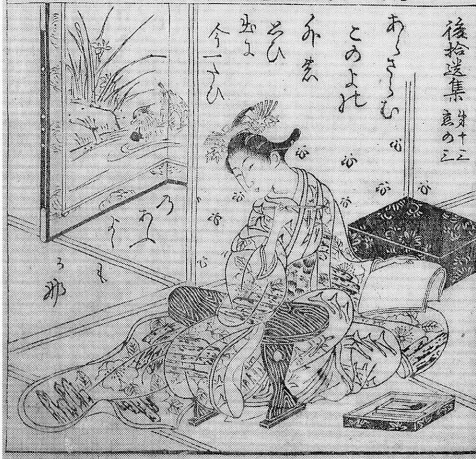 後拾遺集 第十三
恋の三
あらさらむ
このよの
外の
思ひ
出に
今一たひ
の
あふ
よし
も
かな